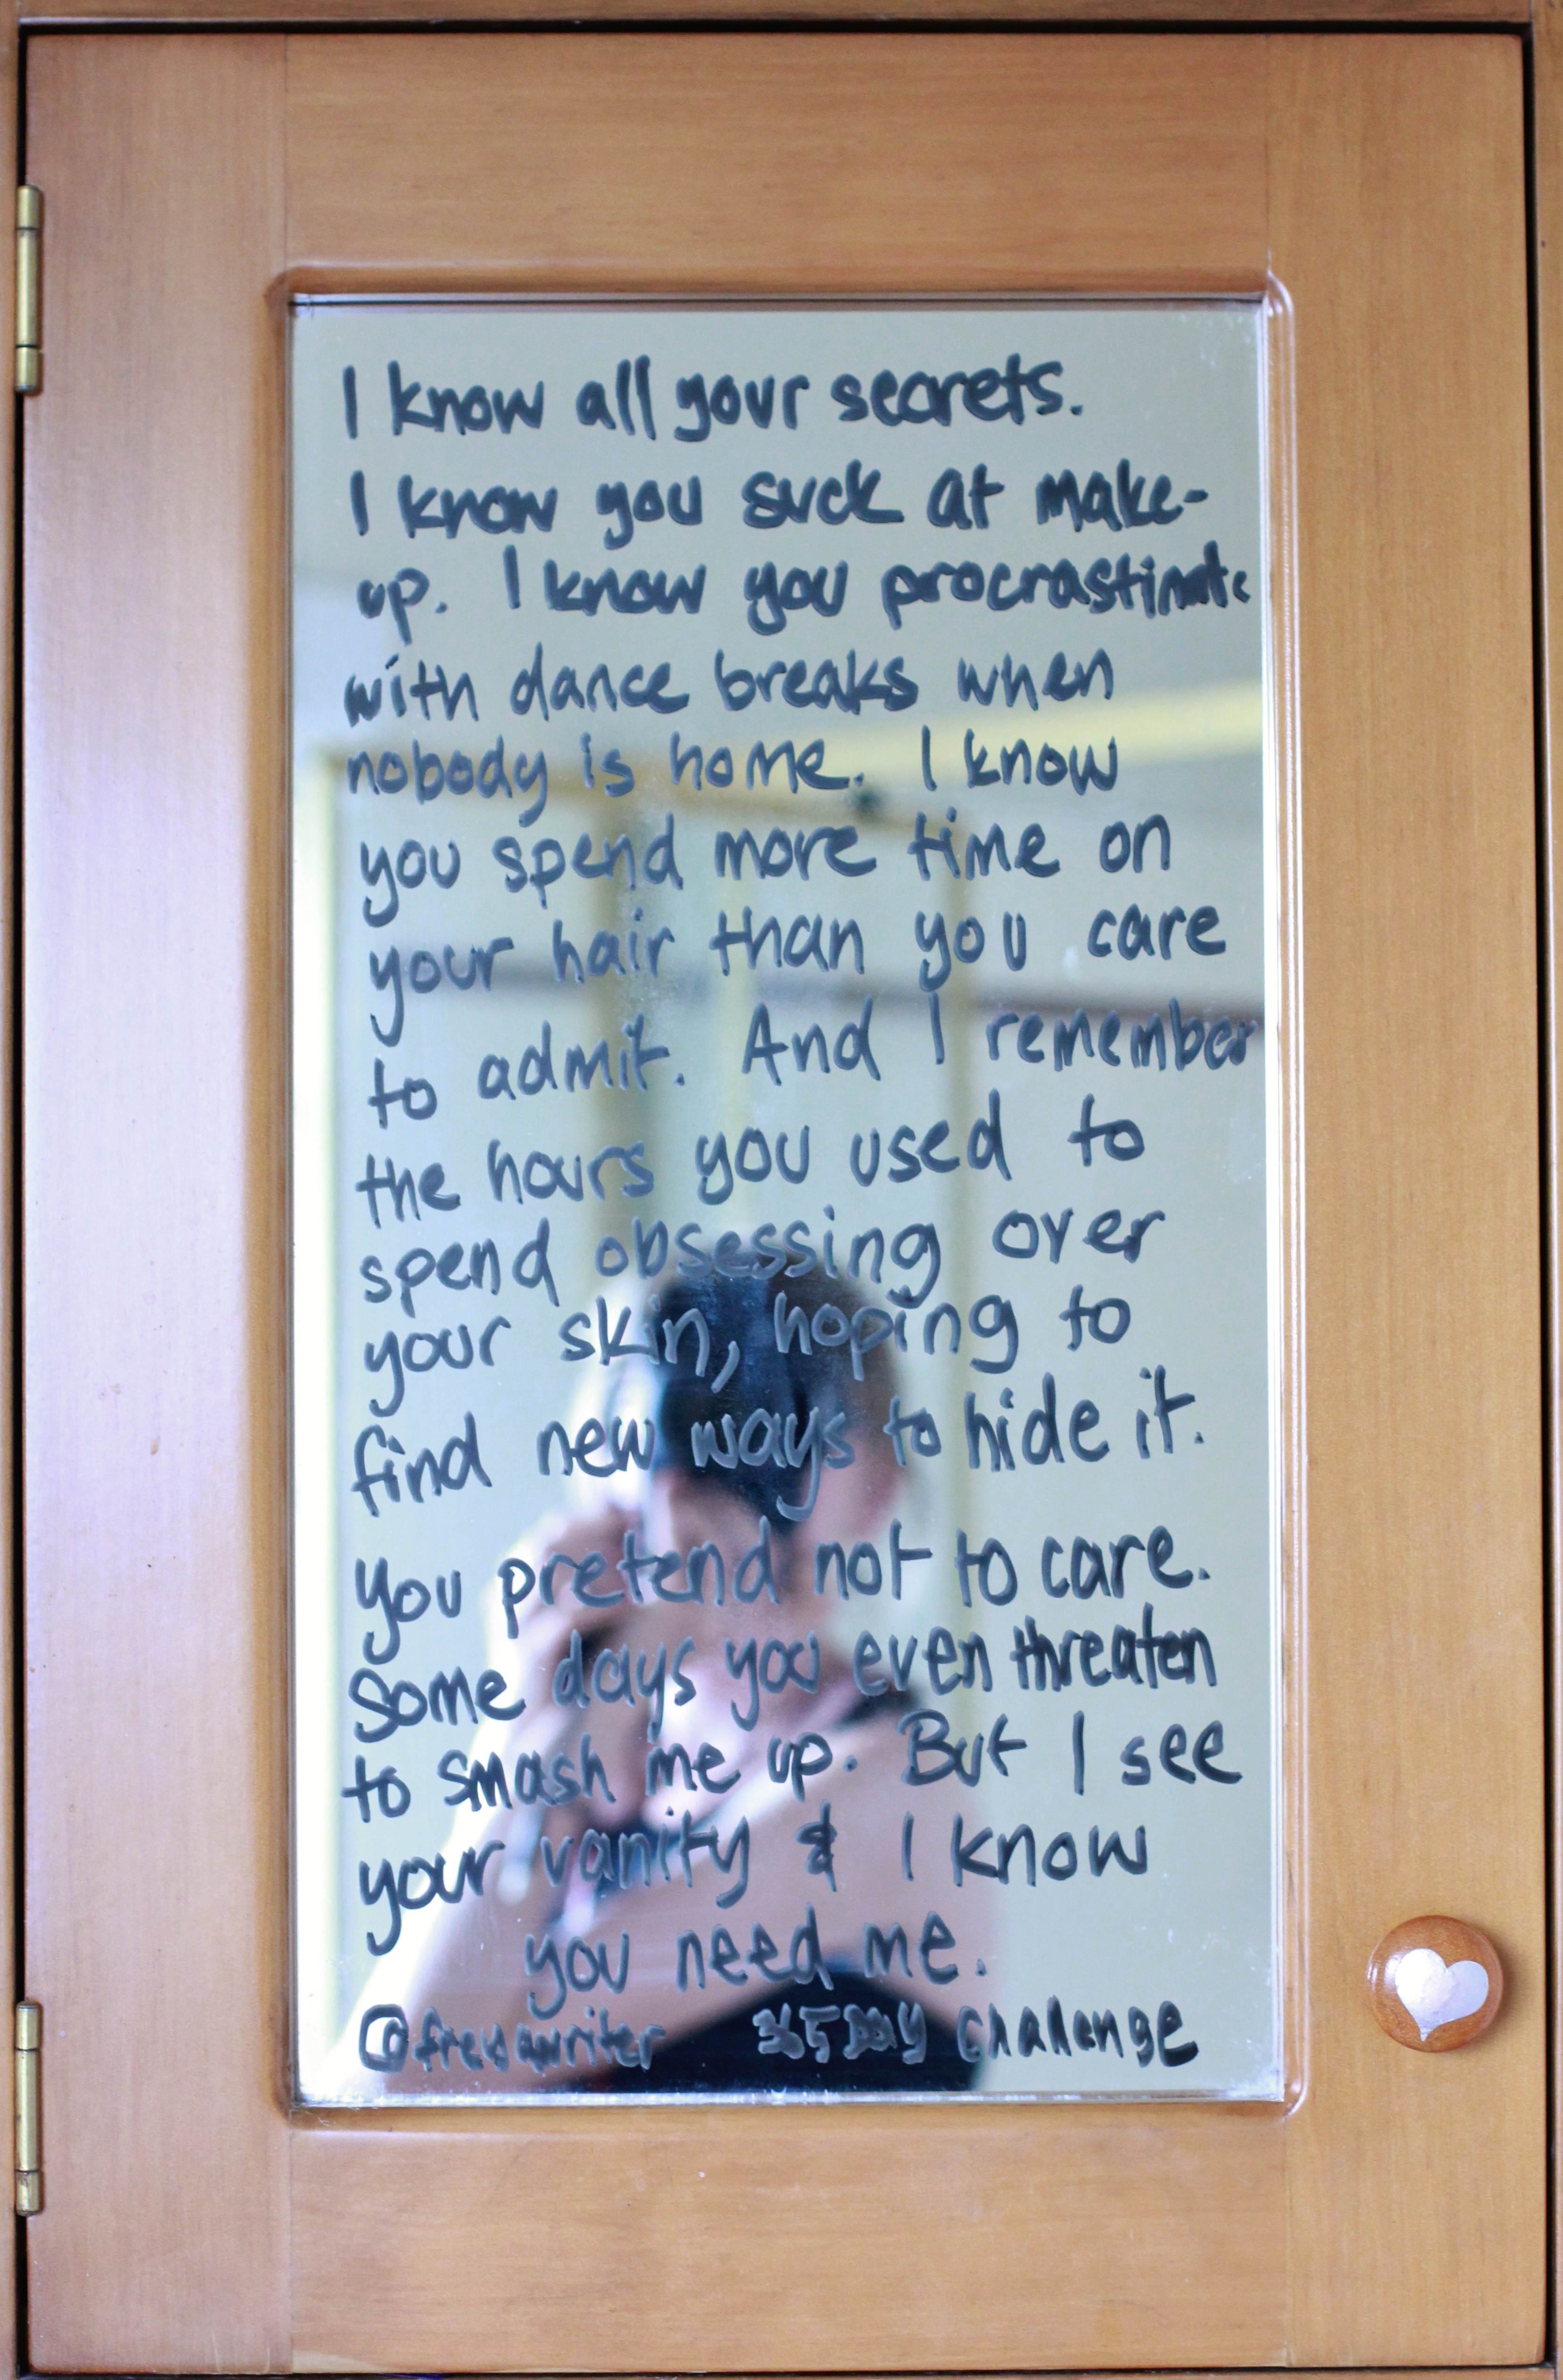 I know all your secrets.
I know you suck at make-
up. I know you procrastinate
with dance breaks when
nobody is home. I know
you spend more time on
your hair than you care
to admit. And I remember
the hours you used to
spend obsessing over
your skin, hoping to
find new ways to hide it.
You pretend not to care.
Some days you even threaten
to smash me up. But I see
your vanity & I know
you need me.
@freyawriter 365 Day Challenge